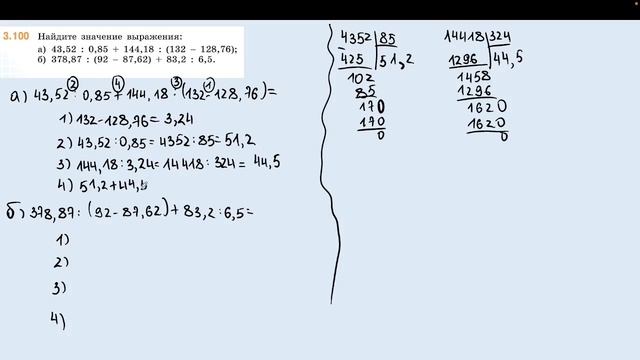 3.100 Найдите значение выражения:
а) 43,52 : 0,85 + 144,18 : (132 – 128,76);
б) 378,87 : (92 – 87,62) + 83,2 : 6,5.
2 4 3 1
а) 43,52 : 0,85 + 144,18 : (132-128,76)=
1) 132-128,76= 3,24
2) 43,52:0,85= 4352:85= 51,2
3) 144,18:3,24= 14418:324= 44,5
4) 51,2+44,5
б) 378,87: (92-87,62)+83,2:6,5=
1)
2)
3)
4)
4352 85
425 51,2
102
85
170
170
0
14418 324
1296 44,5
1458
1296
1620
1620
0